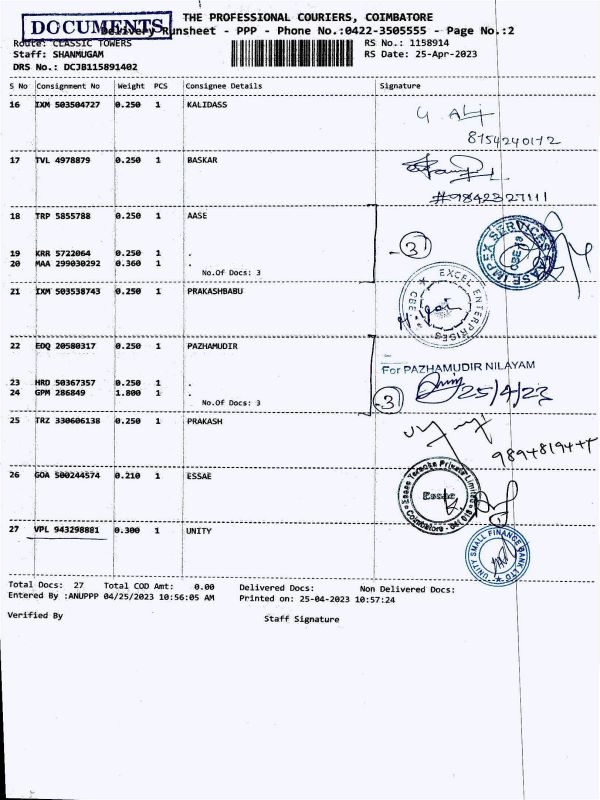 THE PROFESSIONAL COURIERS, COIMBATORE
DOCUMENTS
Delivery Runsheet - PPP - Phone No.:0422-3505555 - Page No.:2
Route: CLASSIC TOWERS RS No.: 1158914
Staff: SHANMUGAM RS Date: 25-Apr-2023
DRS No.: DCJB115891402
S No Consignment No Weight PCS Consignee Details Signature
16 IXM 503504727 0.250 1 KALIDASS
8754240172
17 TVL 4978879 0.250 1 BASKAR
#9842327111
18 TRP 5855788 0.250 1 AASE
- 3
AASE IMPEX SERVICES
CBE-18
19 KRR 5722064 0.250 1 .
20 MAA 299030292 0.360 1 .
No.Of Docs: 3
21 IXM 503538743 0.250 1 PRAKASHBABU
EXCEL ENTERPRISES
CBE
22 EDQ 20580317 0.250 1 PAZHAMUDIR
For PAZHAMUDIR NILAYAM
25/4/23
23 HRD 50367357 0.250 1 .
24 GPM 286849 1.800 1 .
-3
No.Of Docs: 3
25 TRZ 330606138 0.250 1 PRAKASH
26 GOA 500244574 0.210 1 ESSAE
Essae Teraoka Private Limited
Essae
Coimbatore - 641 018
27 VPL 943298881 0.300 1 UNITY
UNITY SMALL FINANCE BANK LTD
Total Docs: 27 Total COD Amt: 0.00 Delivered Docs: Non Delivered Docs:
Entered By :ANUPPP 04/25/2023 10:56:05 AM Printed on: 25-04-2023 10:57:24
Verified By Staff Signature